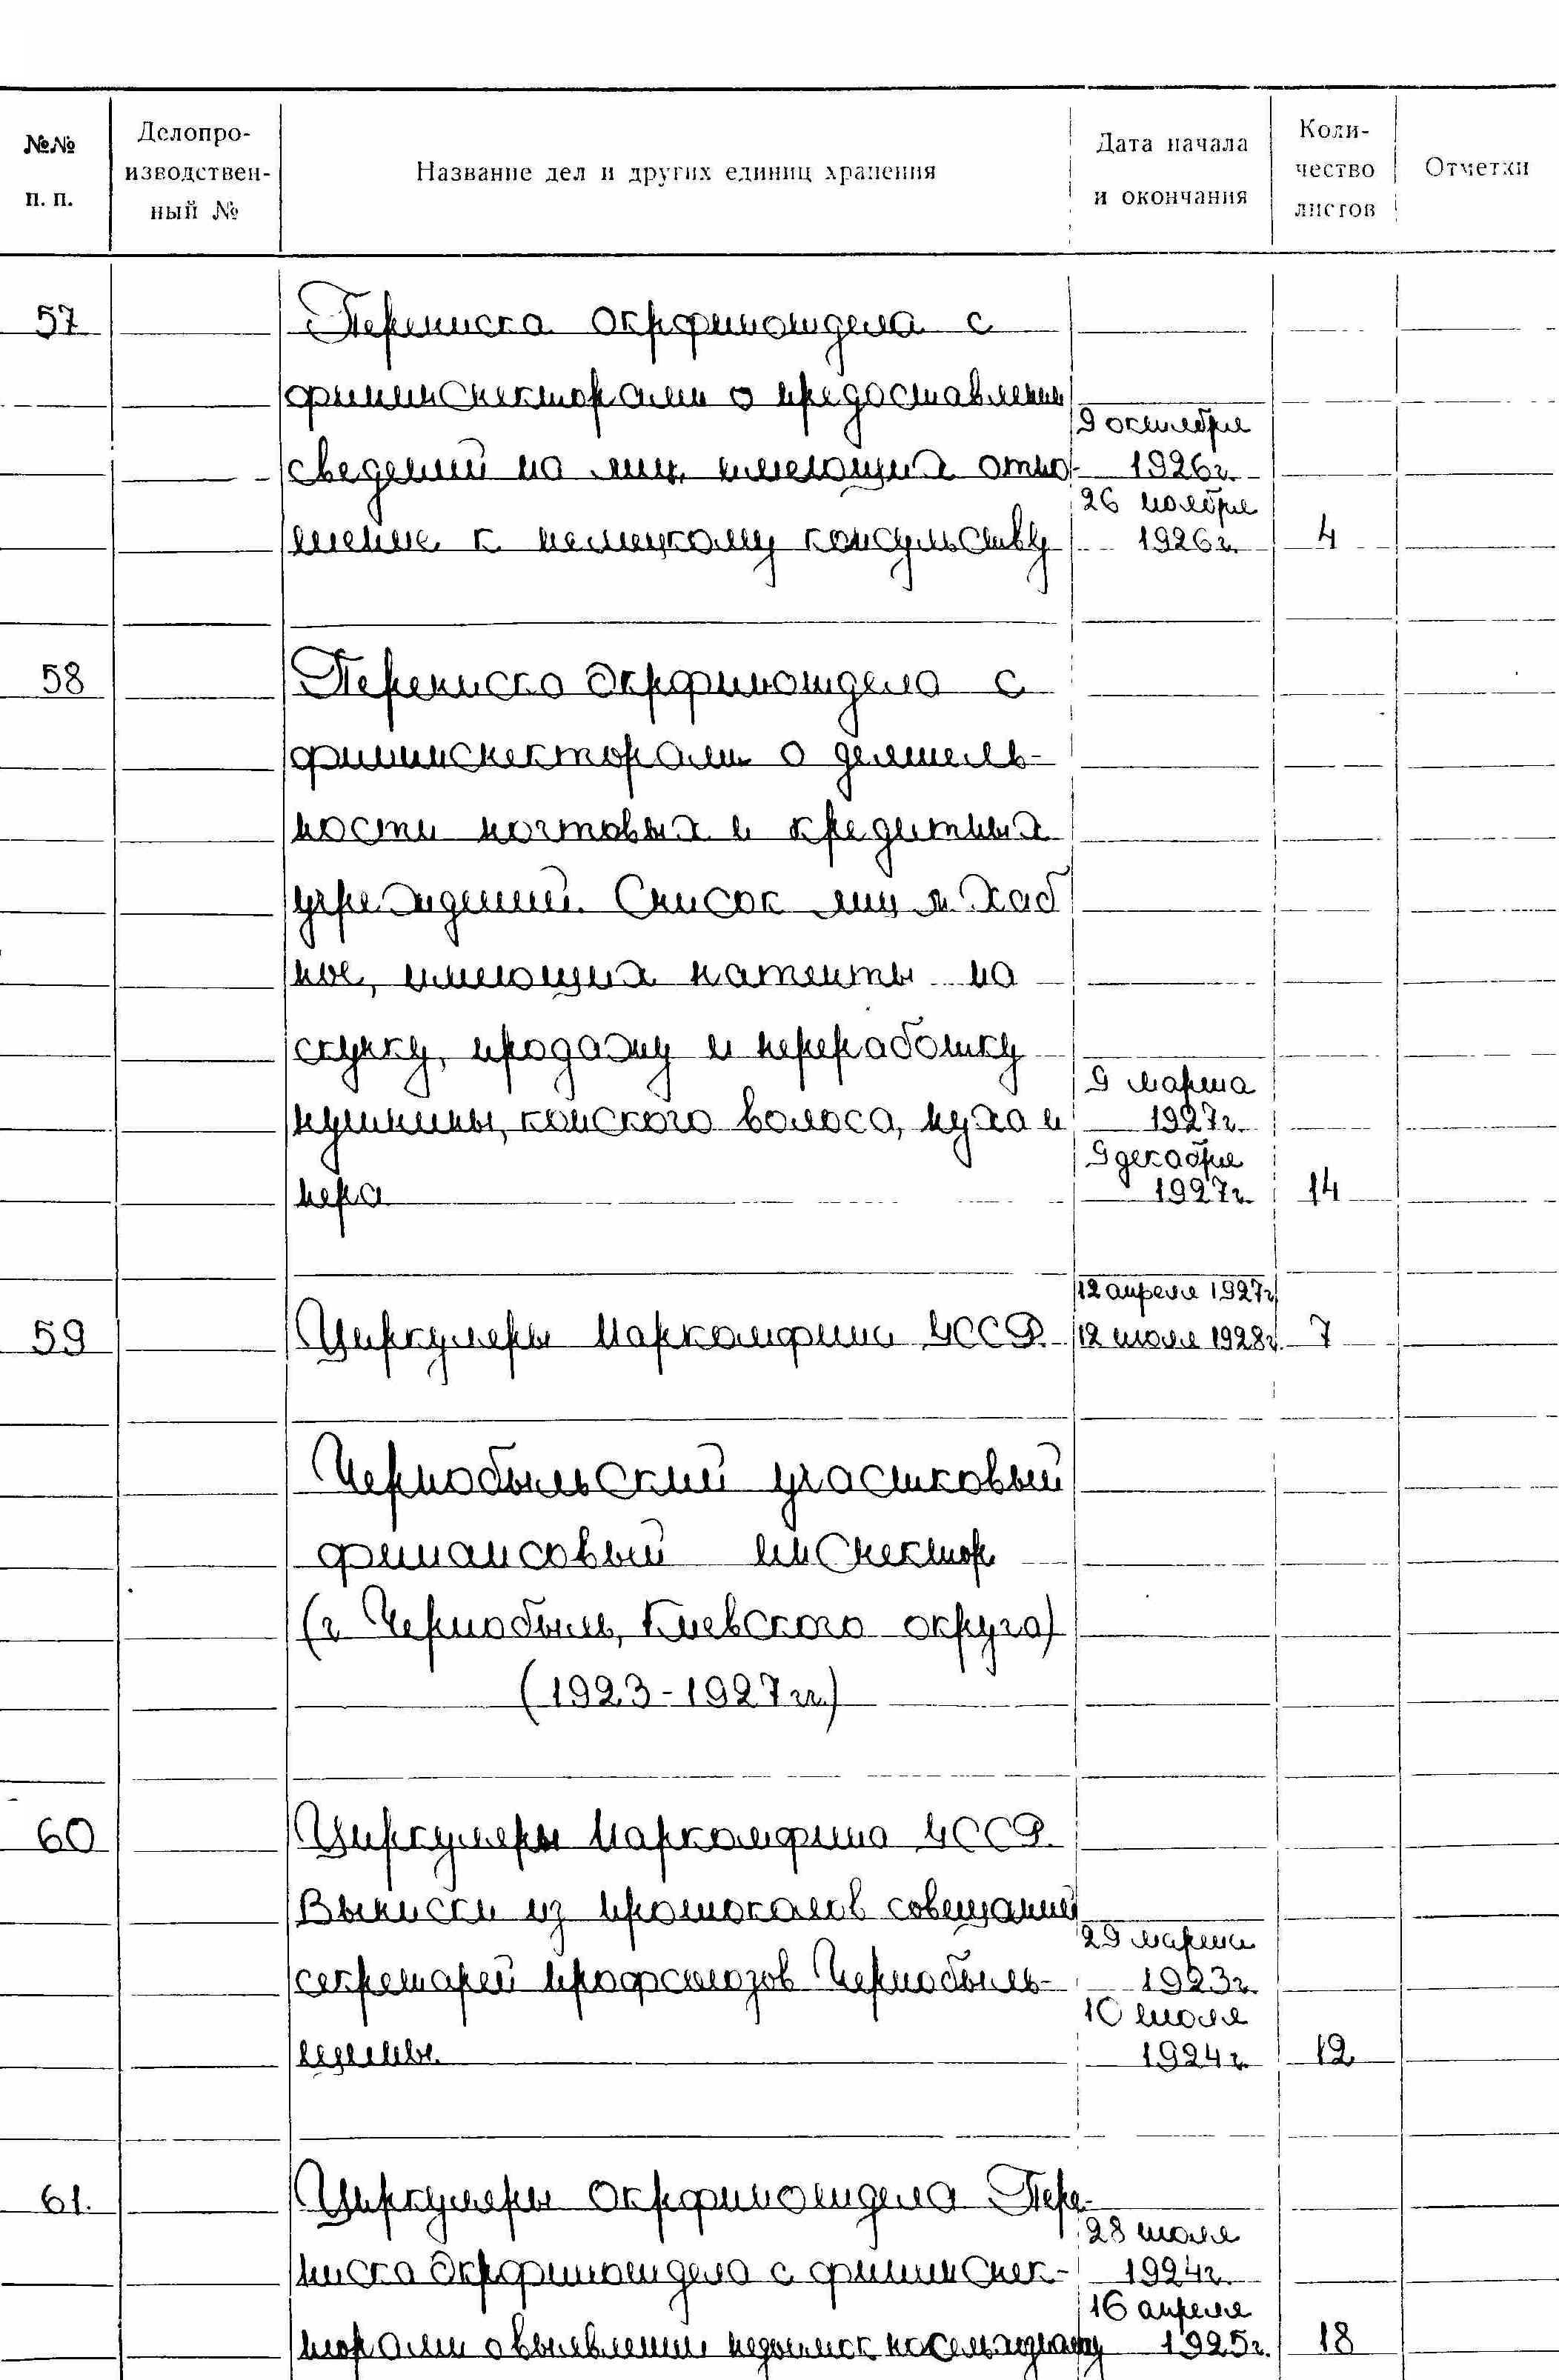 №№ п. п.
Делопро-
изводствен-
ный №
Название дел и других единиц хранения
Дата начала
и окончания
Коли-
чество
листов
Отметки
57
Переписка окрфинотдела с
фининспекторами о предоставлении
9 октября
сведений на лиц, имеющих отно- 1926г.
26 ноября
шение к немецкому консульству 1926г. 4
58
Переписка окрфинотдела с
фининспекторами о деятель-
ности почтовых и кредитных
учреждений. Список лиц м. Хаб
ное, имеющих патенты на
скупку, продажу и переработку
9 марта
пушнины, конского волоса, пуха и 1927г.
9 декабря
пера 1927г. 14
12 апреля 1927г
59 Циркуляры Наркомфина УССР. 12 июля 1928г. 7
Чернобыльский участковый
финансовый инспектор
(г. Чернобыль, Киевского округа)
(1923-1927гг.)
60 Циркуляры Наркомфина УССР.
Выписки из протоколов совещаний
29 марта
секретарей профсоюзов Чернобыль- 1923г.
10 июля
щины 1924г. 12
61. Циркуляры окрфинотдела Пере-
28 июля
писка окрфинотдела с фининспек- 1924г.
16 апреля
торами о выявлении недоимок по сельхозналогу 1925г. 18